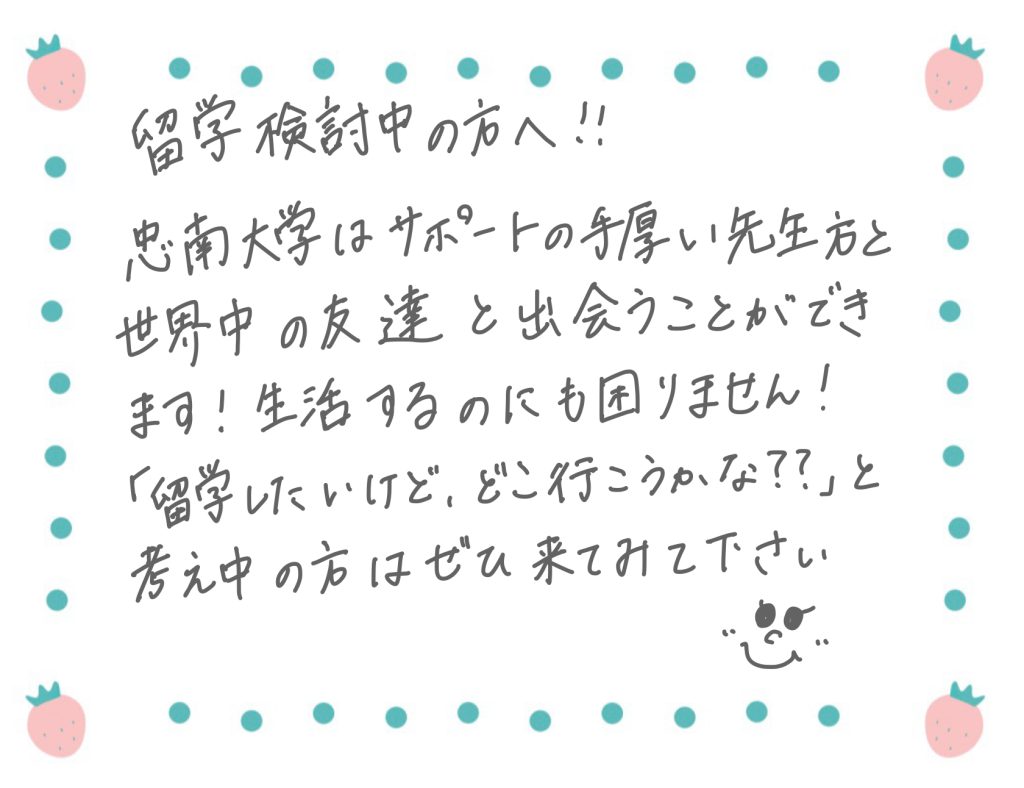 留学検討中の方へ!!
忠南大学はサポートの手厚い先生方と
世界中の友達と出会うことができ
ます!生活するのにも困りません!
「留学したいけど、どこ行こうかな??」と
考え中の方はぜひ来てみて下さい